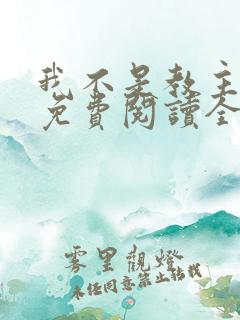 我不是教主
免費閱讀全
雾里觀燈
未经同意禁止转载